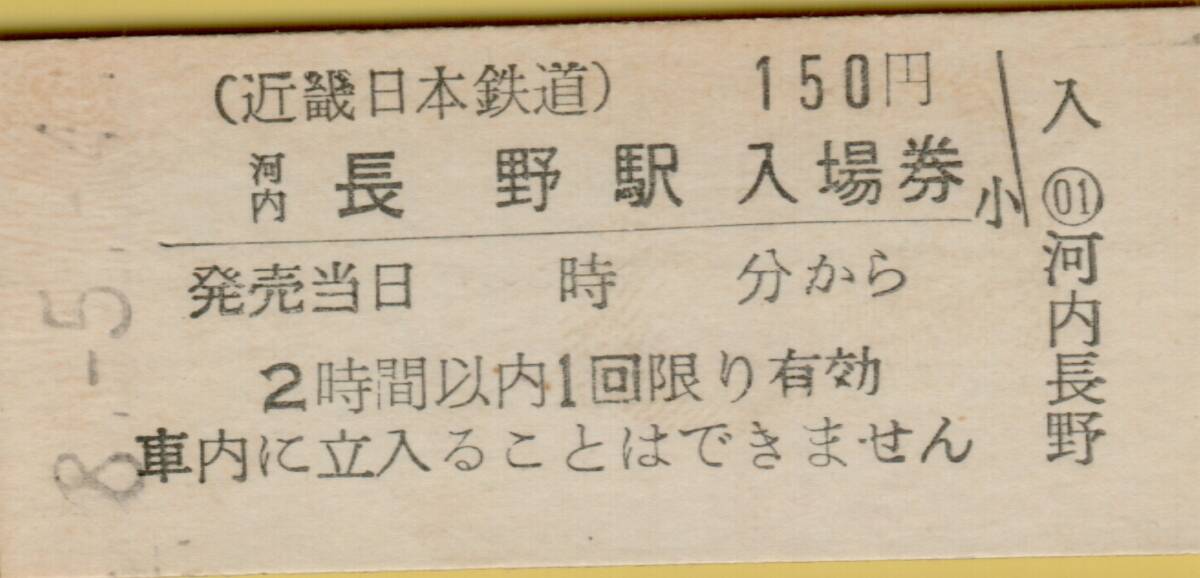 (近畿日本鉄道) 150円
河内長野駅入場券
小
発売当日 時 分から
2時間以内1回限り有効
車内に立入ることはできません
入 01 河内長野
8.-5.-4